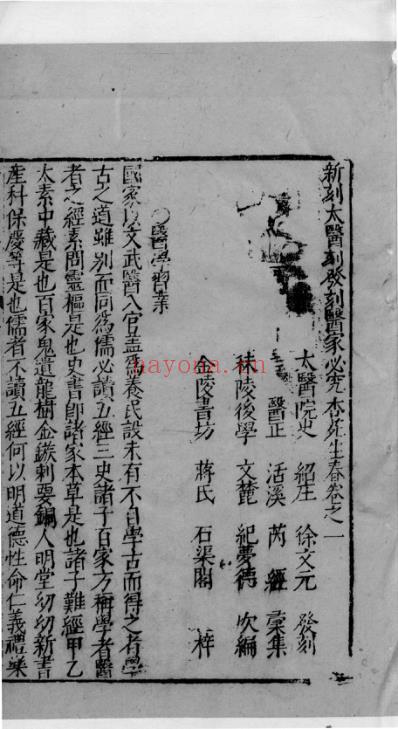 新刻太醫院發刻醫家必究杏苑生春卷之一
太醫院吏 紹庄 徐文元 發刻
醫正 活溪 芮 經 彙集
秣陵後學 文麓 紀夢德 吹編
金陵書坊 蔣氏 石渠閣 梓
○醫學習業
國家以文武醫入官盖爲養民設未有不自學古而得之者學
古之道雖别而同爲儒必讀五經三史諸子百家方稱學者醫
者之經素問靈樞是也史書即諸家本草是也諸子難經甲乙
太素中藏是也百家鬼遺龍樹金鏃刺要銅人明堂幼幼新書
産科保慶等是也儒者不讀五經何以明道德性命仁義禮樂
nayona.cn